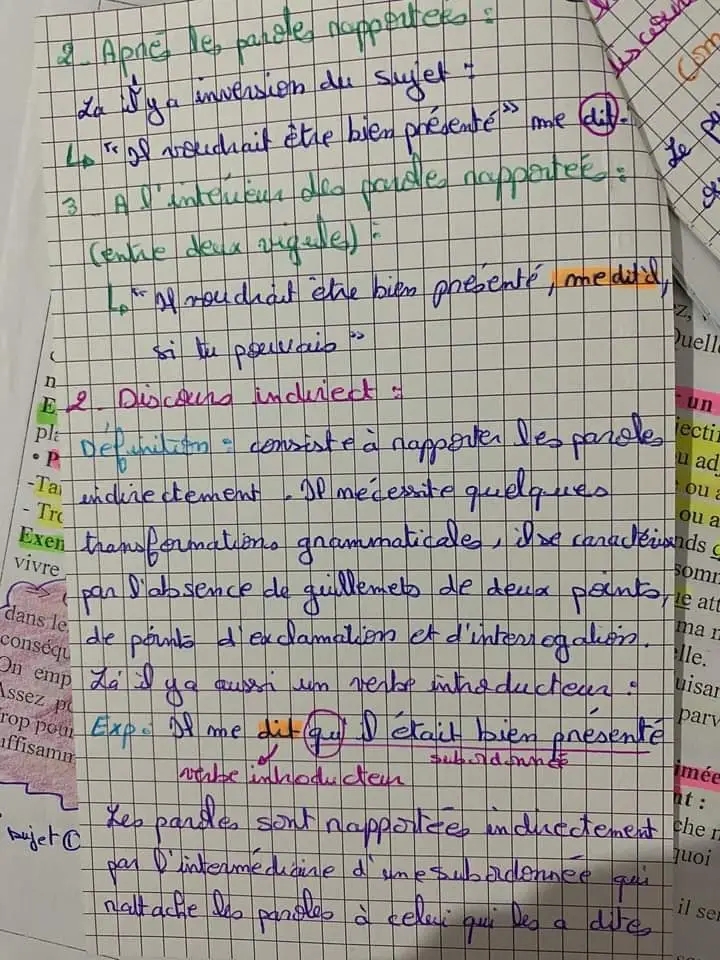 2. Après les paroles rapportées :
Là il y a inversion du sujet :
↳ "Il voudrait être bien présenté" me dit.
3. A l'intérieur des paroles rapportées :
(entre deux virgules) :
↳ "Il voudrait être bien présenté, me dit il,
si tu pouvais"
2. Discours indirect :
Définition : consiste à rapporter les paroles
indirectement. Il nécessite quelques
transformations grammaticales, il se caractérise
par l'absence de guillemets de deux points,
de points d'exclamation et d'interrogation.
Là il y a aussi un verbe introducteur :
Exp : Il me dit qu'il était bien présenté
verbe introducteur subordonnée
Les paroles sont rapportées indirectement
par l'intermédiaire d'une subordonnée qui
rattache les paroles à celui qui les a dites
Exen
vivre
dans le
conséqu
On emp
Assez p
rop pour
uffisamm
sujet
Quell
un
jecti
u adj
ou a
ou a
somm
e att
ma n
elle.
uisan
parv
imée
nt :
che n
quoi
il ser
Le p